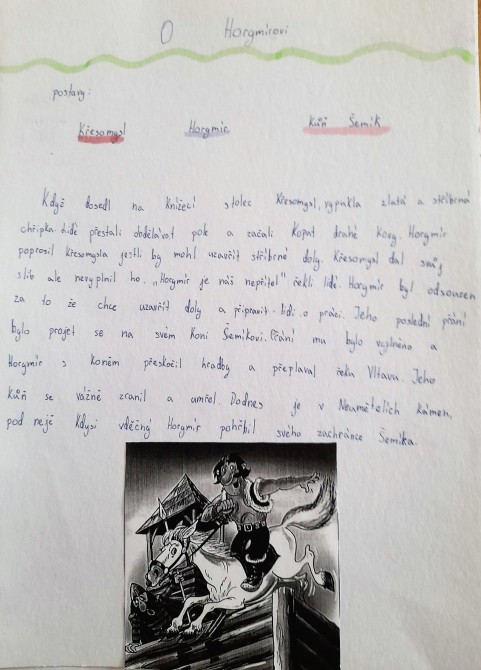 O Horgmírovi
postavy:
Křesomysl Horgmír Kůň Šemík
Když dosedl na Knížecí stolec Křesomysl, vypukla zlatá a stříbrná
chřipka. Lidé přestali obdělávat pole a začali kopat drahé kovy. Horgmír
poprosil Křesomysla jestli by mohl uzavřít stříbrné doly. Křesomysl dal svůj
slib ale nevyplnil ho. „Horgmír je náš nepřítel" řekli lidé. Horgmír byl odsouzen
za to že chce uzavřít doly a připravit lidi o práci. Jeho poslední přání
bylo projet se na svém koni Šemíkovi. Přání mu bylo vyplněno a
Horgmír s koněm přeskočil hradby a přeplaval řeku Vltavu. Jeho
kůň se vážně zranil a umřel. Dodnes je v Neumětelích kámen,
pod nejž kdysi vděčný Horgmír pohřbil svého zachránce Šemíka.